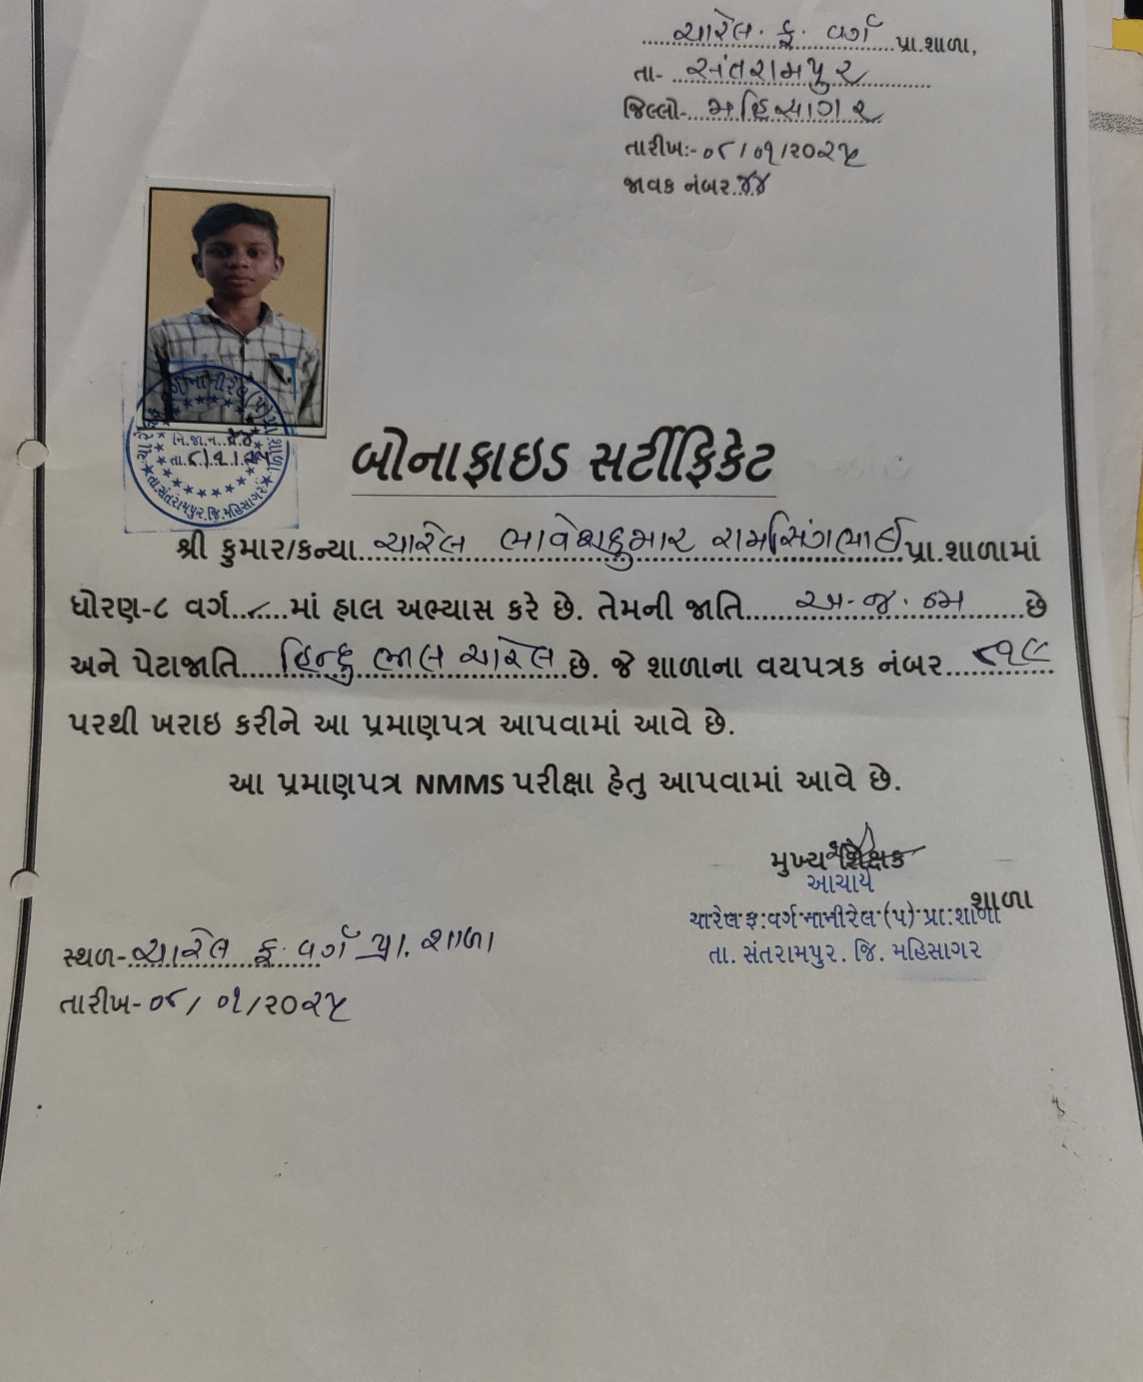 ચારેલ. ફ. વર્ગ પ્રા.શાળા,
તા- સંતરામપુર
જિલ્લો- મહિસાગર
તારીખ:- ૦૮/૦૧/૨૦૨૫
જાવક નંબર. ૪૪
તા. ૮/૧/૨૫
તા.સંતરામપુર.જિ.મહિસાગર
બોનાફાઇડ સર્ટીફિકેટ
શ્રી કુમાર/કન્યા ચારેલ ભાવેશકુમાર રામસિંગભાઈ પ્રા.શાળામાં
ધોરણ-૮ વર્ગ..૮...માં હાલ અભ્યાસ કરે છે. તેમની જાતિ અ.જ.જા છે
અને પેટાજાતિ હિન્દુ ભીલ ચારેલ છે. જે શાળાના વયપત્રક નંબર ૮૧૯
પરથી ખરાઇ કરીને આ પ્રમાણપત્ર આપવામાં આવે છે.
આ પ્રમાણપત્ર NMMS પરીક્ષા હેતુ આપવામાં આવે છે.
મુખ્ય શિક્ષક
આચાર્ય
શાળા
ચારેલ ફ.વર્ગ નાનીરેલ (પ) પ્રા.શાળા
તા. સંતરામપુર. જિ. મહિસાગર
સ્થળ- ચારેલ ફ. વર્ગ પ્રા. શાળા
તારીખ- ૦૮/૦૧/૨૦૨૫